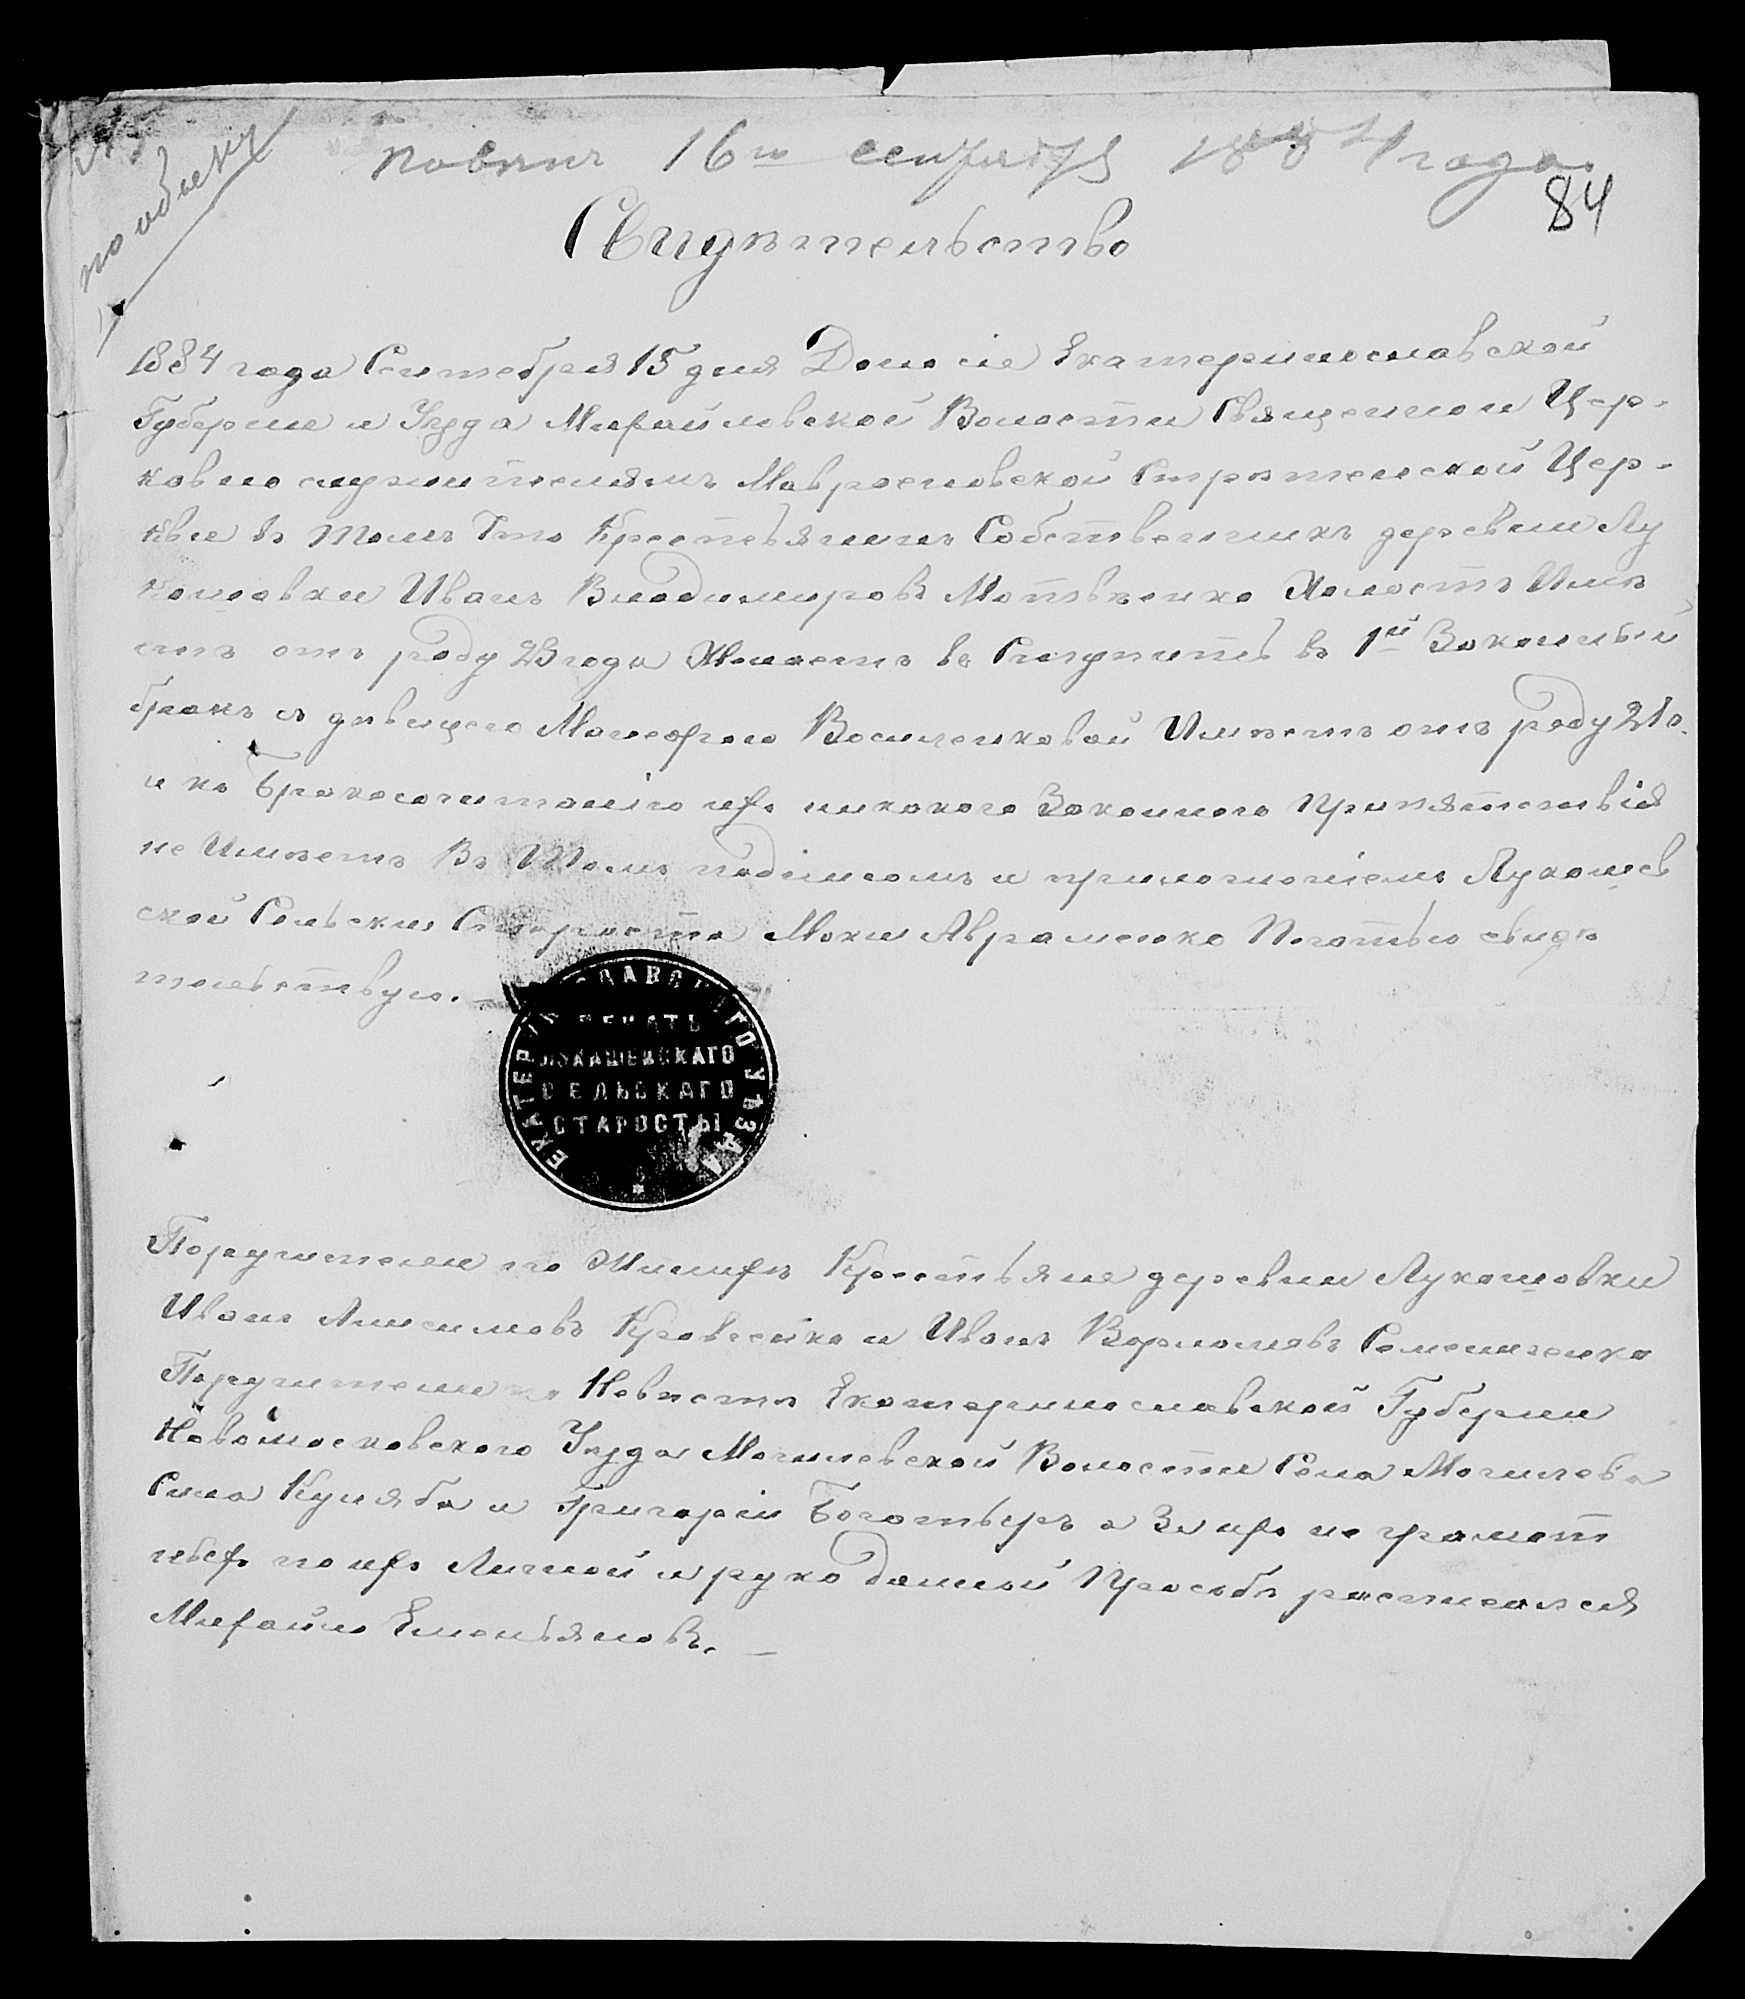 по обыску
Повѣнч 16го сентября 1884 года
84
Свидѣтельство
1884 года Сентебря 15 дня Дано сіе Екатеринославской
Губерние и Уезда Михайловской Волости Священно и Цер-
ковно служителямъ Мавроеновской Стрѣтенской Цер-
кве въ томъ Что Крестьянинъ Собственникъ деревни Лу
кашовки Иванъ Владимировъ Матвѣенко Холостъ Имѣ
етъ отъ роду 23 года Желаетъ въ Ступить въ 1й Законный
бракъ съ дѣвицею Васиченковой Имѣетъ отъ роду 21 г.
и ко Бракосочитанію ихъ никакого Законного Припятствія
не Имѣетъ Въ Томъ подписомъ и приложеніемъ Лукашев
ской Сельский Староста Авраменко Печатью свидѣ
тельствую.
ЕКАТЕРИНОСЛАВСКАГО УѢЗДА
ПЕЧАТЬ
ЛУКАШЕВСКАГО
СЕЛЬСКАГО
СТАРОСТЫ
Поручители по Жинихѣ Крестьяне деревни Лукашовки
Иванъ Анисимовъ Кравченко и Иванъ Варламовъ Семениченко
Поручители по Невѣсте Екатеринославской Губерни
Новомосковского Уезда Могилевской Волости Села Могилева
Сила Куняба и Григорій Богатырь а За ихъ не грамот
ныхъ по ихъ Личной и руко данной Просьбѣ росписался
Михайло Емельяновъ.